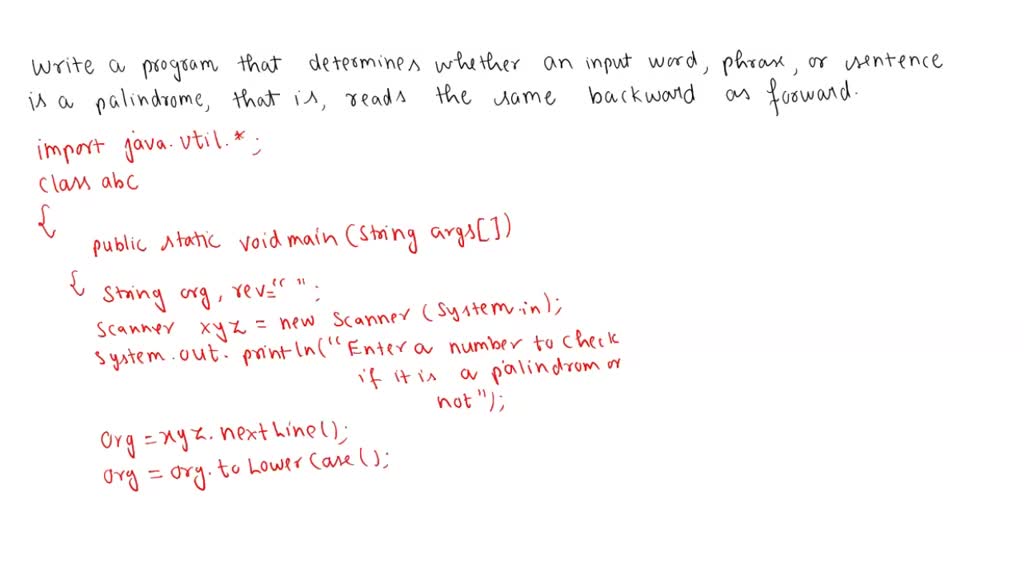 Write a program that determines whether an input word, phrase, or sentence
is a palindrome, that is, reads the same backward as forward.
import java.util.*;
class abc
{
public static void main (String args[])
{ String org, rev=" ";
Scanner xyz = new Scanner (System.in);
System.out.println("Enter a number to check
if it is a palindrom or
not");
org = xyz.nextLine();
org = org.toLowerCase();